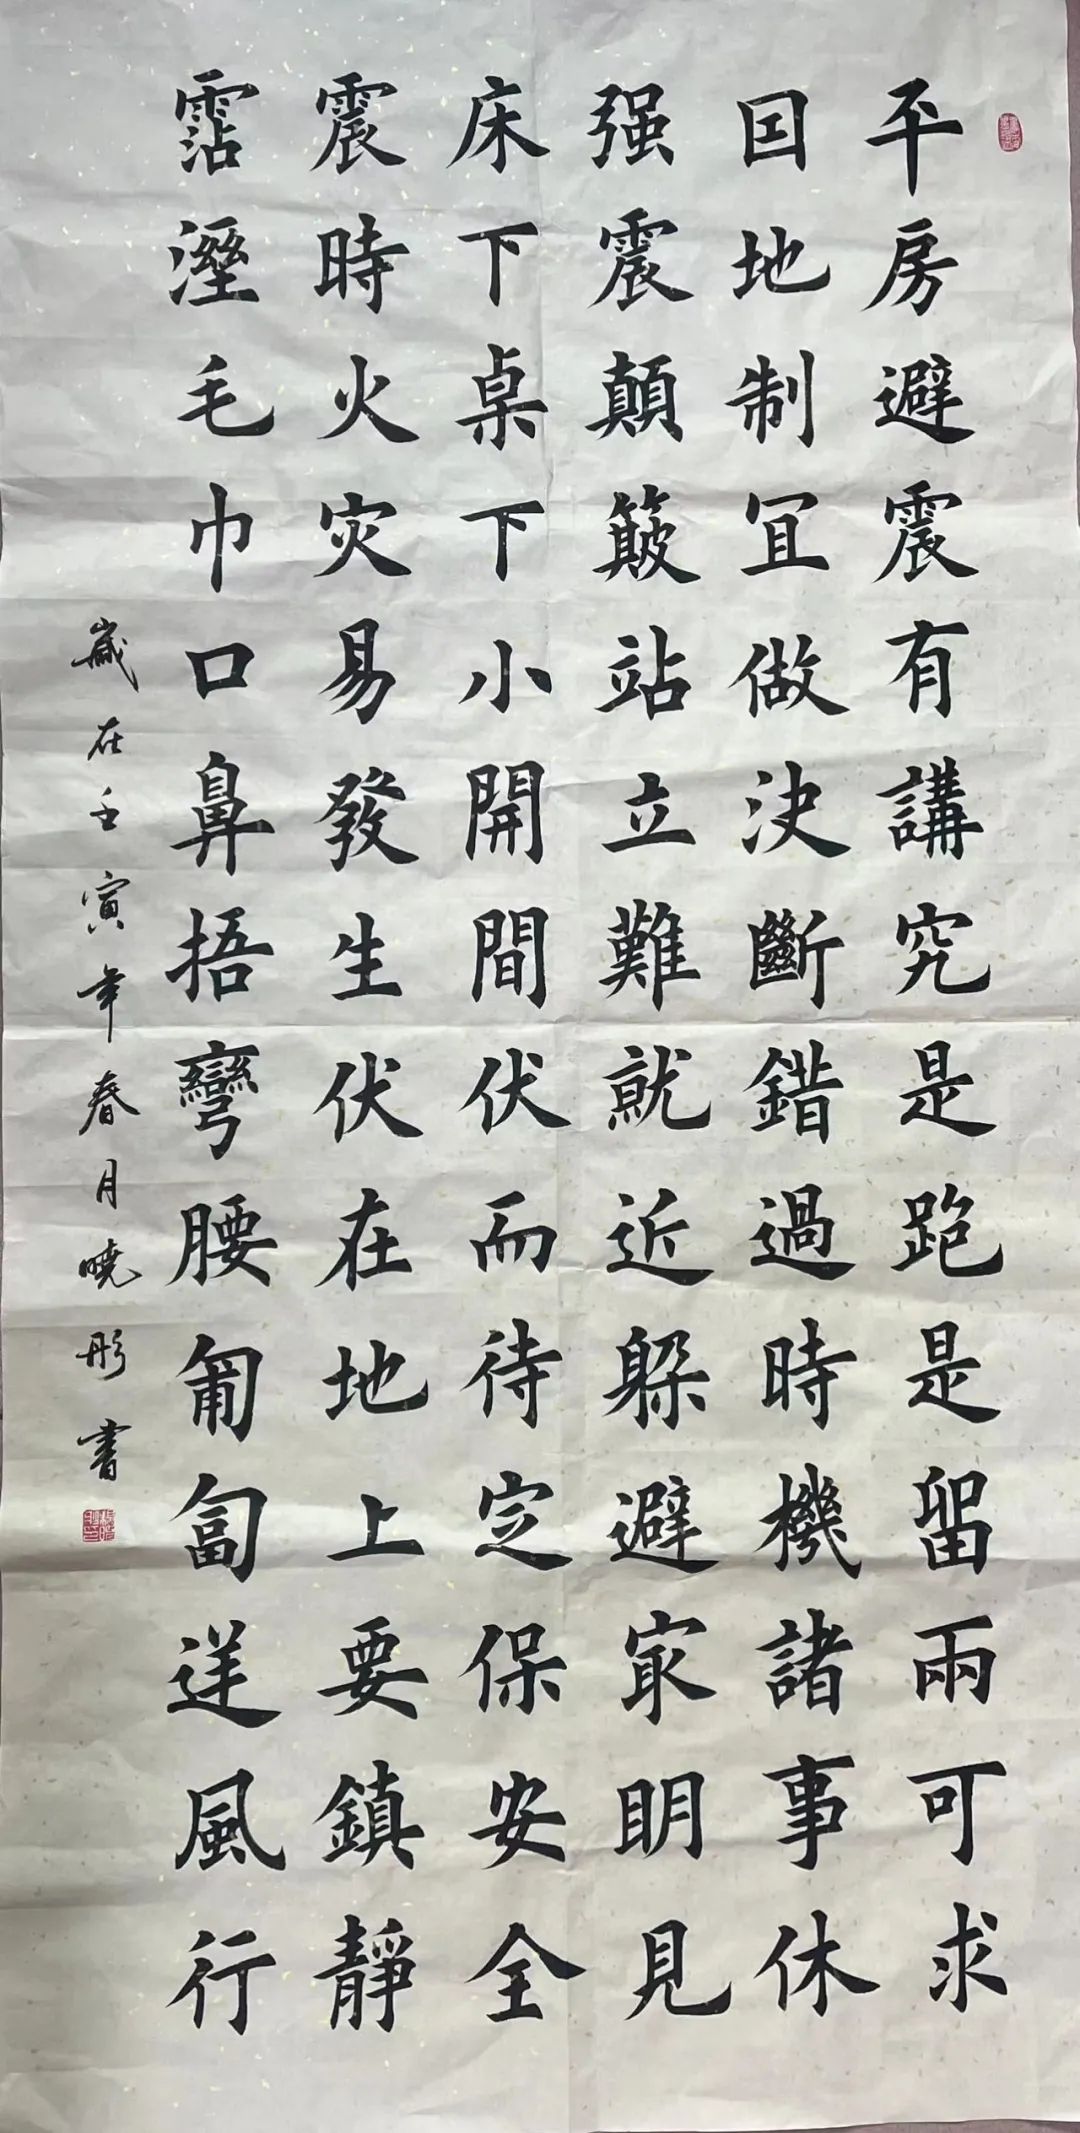 平房避震有講究是跑是留兩可求
囙地制冝做決斷錯過時機諸事休
强震顛簸站立難就近躲避冣明見
床下桌下小開間伏而待定保安全
震時火灾易發生伏在地上要鎮靜
霑溼毛巾口鼻捂彎腰匍匐逆風行
歲在壬寅年春月曉彤書